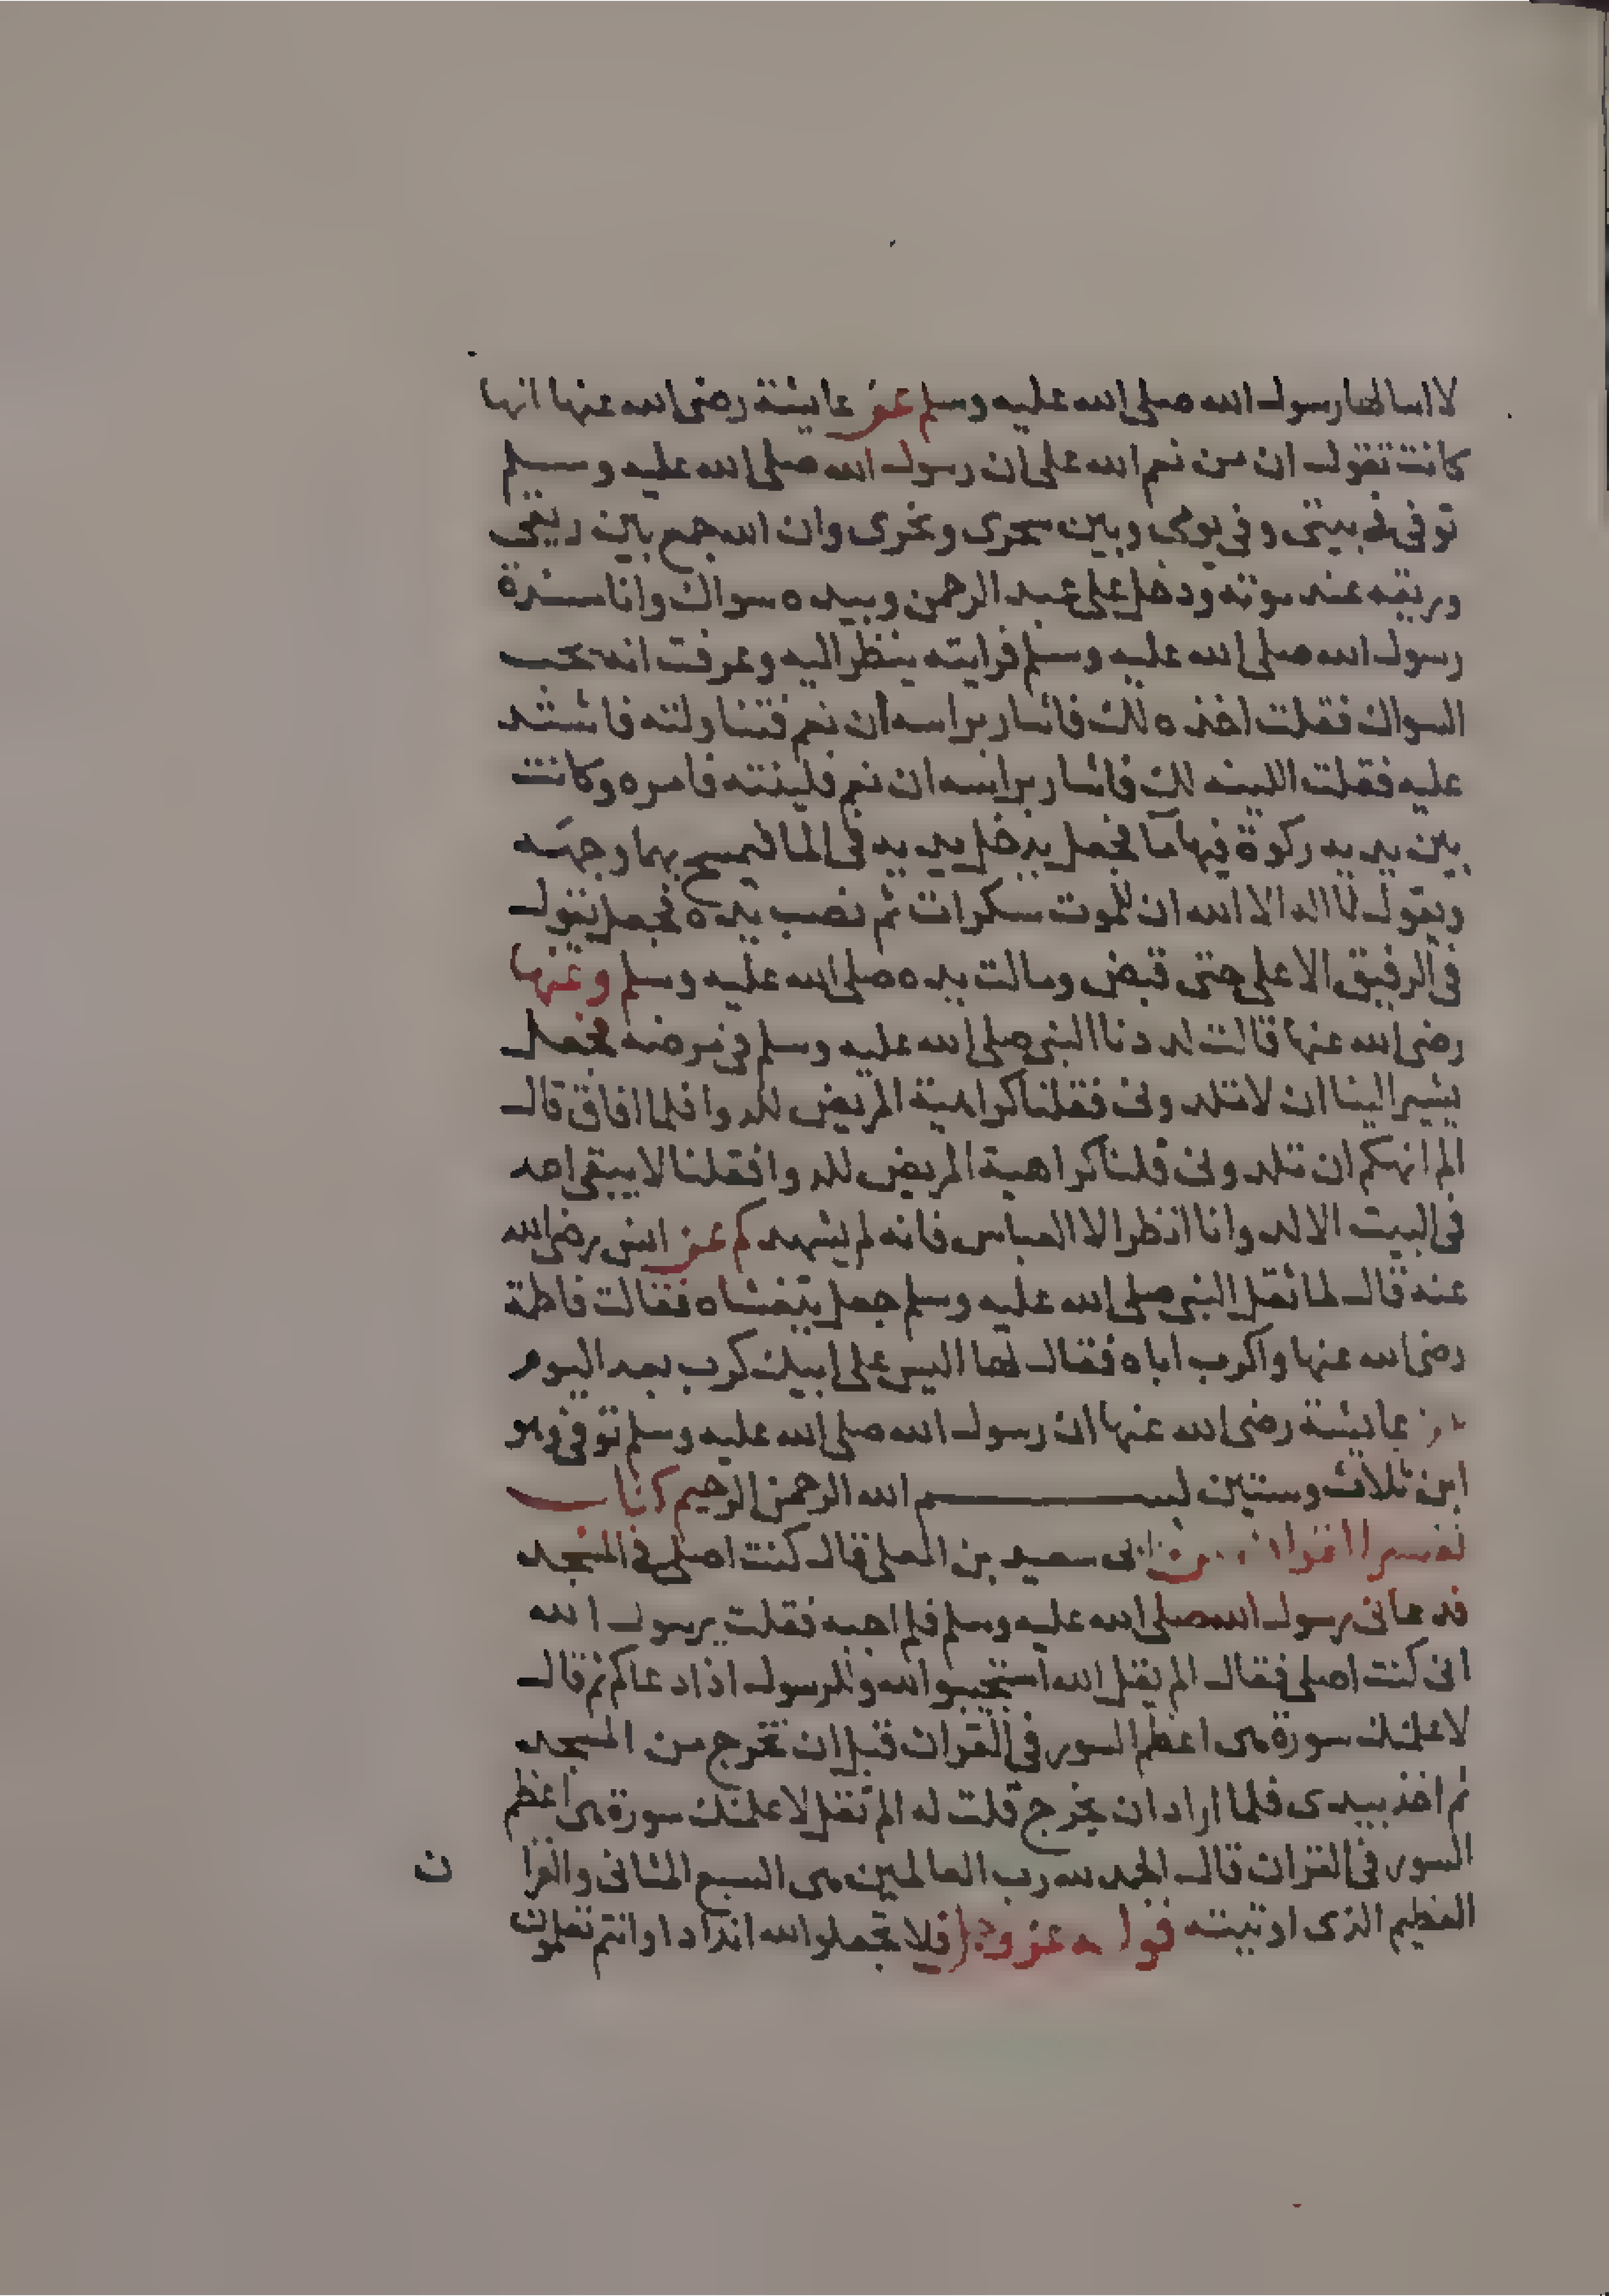 لا اسالها رسول الله صلى الله عليه وسلم عن عايشة رضى الله عنها انها
كانت تقول ان من نعم الله على ان رسول الله صلى الله عليه وسلم
توفى فى بيتى وفى يومى وبين سحرى ونحرى وان الله جمع بين ريقى
وريقه عند موته ودخل على عبد الرحمن وبيده سواك وانا مسندة
رسول الله صلى الله عليه وسلم فرايته ينظر اليه وعرفت انه يحب
السواك فقلت اخذه لك فاشار براسه ان نعم فتناولته فاشتد
عليه فقلت الينه لك فاشار براسه ان نعم فلينته فامره وكانت
بين يديه ركوة فيها ما فجعل يدخل يديه فى الما فيمسح بهما وجهه
ويقول لا اله الا الله ان للموت سكرات ثم نصب يده فجعل يقول
فى الرفيق الاعلى حتى قبض ومالت يده صلى الله عليه وسلم وعنها
رضى الله عنها قالت لددنا النبى صلى الله عليه وسلم فى مرضه فجعل
يشير الينا ان لا تلدونى فقلنا كراهية المريض للدوا فلما افاق قال
الم انهكم ان تلدونى قلنا كراهية المريض للدوا فقلنا لا يبقى احد
فى البيت الا لد وانا انظر الا العباس فانه لم يشهدكم عن انس رضى الله
عنه قال لما ثقل النبى صلى الله عليه وسلم جعل يتغشاه فقالت فاطمة
رضى الله عنها واكرب اباه فقال لها اليس على ابيك كرب بعد اليوم
عن عايشة رضى الله عنها ان رسول الله صلى الله عليه وسلم توفى وهو
ابن ثلاث وستين بسم الله الرحمن الرحيم كتاب
تفسير القران عن ابى سعيد بن المعلى قال كنت اصلى فى المسجد
فدعانى رسول الله صلى الله عليه وسلم فلم اجبه فقلت يرسول الله
انى كنت اصلى فقال الم يقل الله استجيبوا لله وللرسول اذا دعاكم ثم قال
لاعلمنك سورة هى اعظم السور فى القران قبل ان تخرج من المسجد
ثم اخذ بيدى فلما اراد ان يخرج قلت له الم تقل لاعلمنك سورة هى اعظم
السور فى القران قال الحمد لله رب العالمين هى السبع المثانى والقرا ن
العظيم الذى اوتيته قوله عز وجل فلا تجعلوا لله اندادا وانتم تعلمون